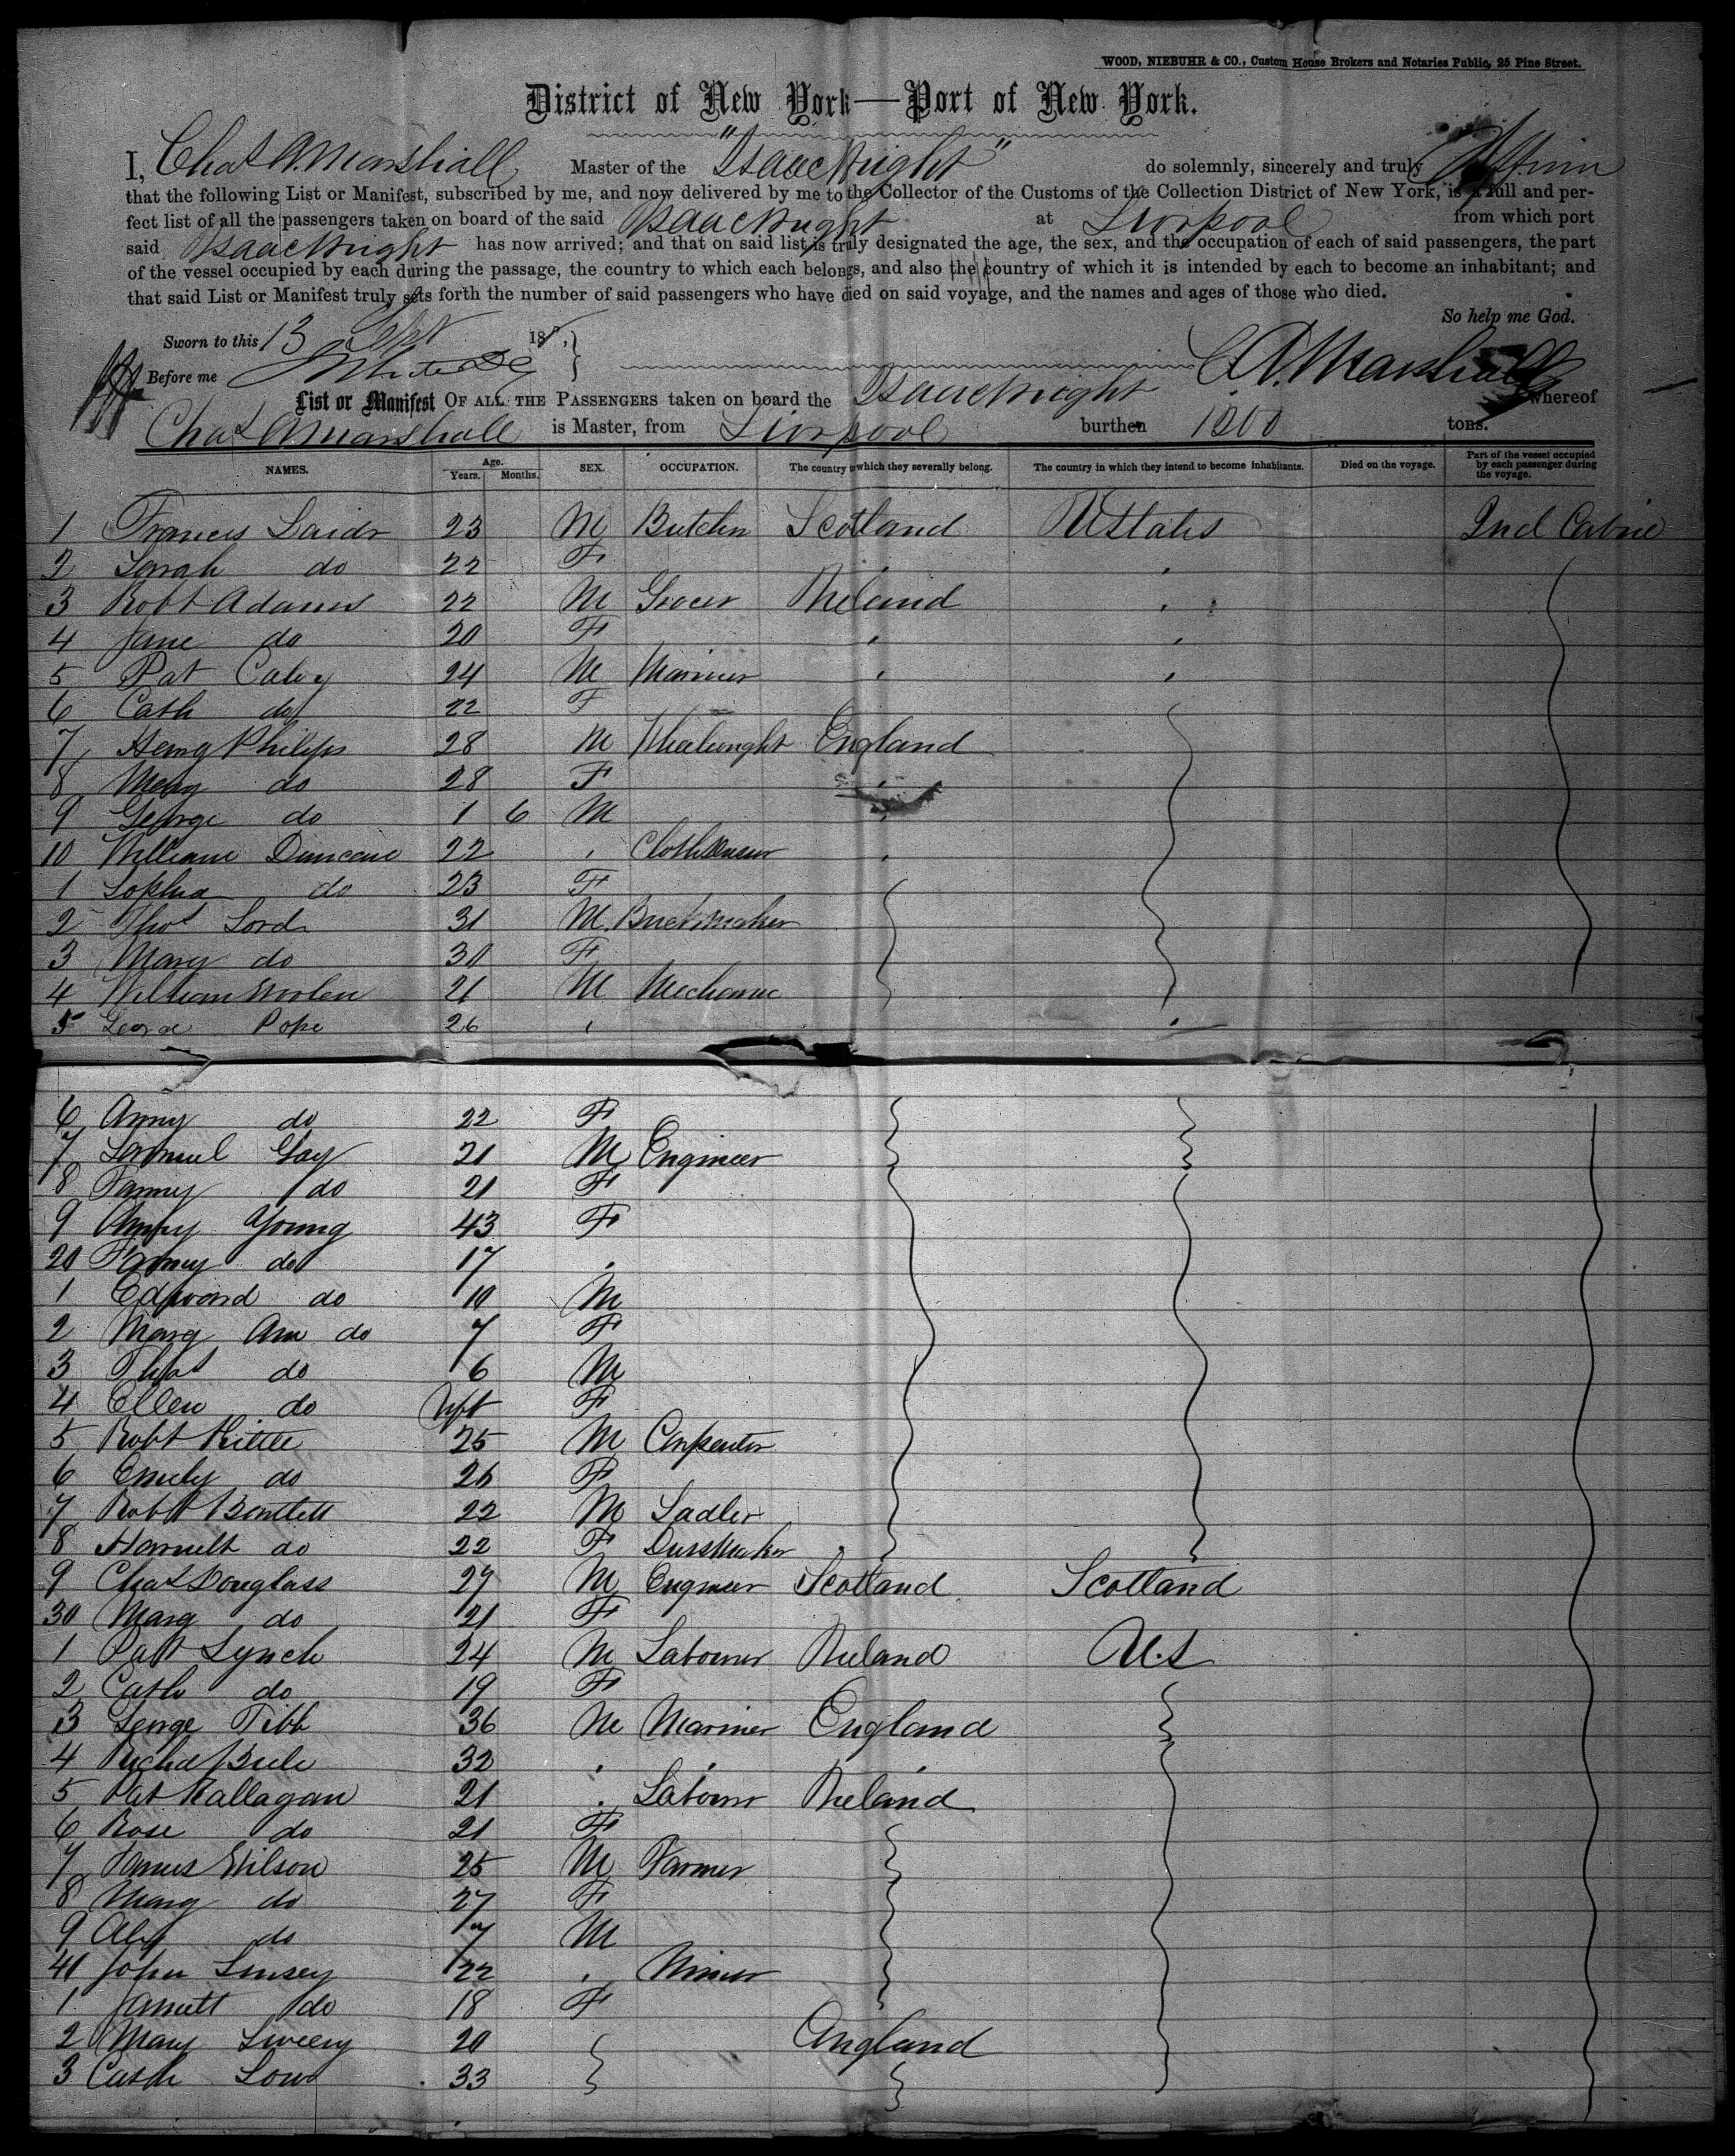 WOOD, NIEBUHR & CO., Custom House Brokers and Notaries Public, 25 Pine Street.
District of New York—Port of New York.
I, Chas A. Marshall Master of the "Isaac Wright" do solemnly, sincerely and truly Affirm
that the following List or Manifest, subscribed by me, and now delivered by me to the Collector of the Customs of the Collection District of New York, is a full and per-
fect list of all the passengers taken on board of the said Isaac Wright at Liverpool from which port
said Isaac Wright has now arrived; and that on said list is truly designated the age, the sex, and the occupation of each of said passengers, the part
of the vessel occupied by each during the passage, the country to which each belongs, and also the country of which it is intended by each to become an inhabitant; and
that said List or Manifest truly sets forth the number of said passengers who have died on said voyage, and the names and ages of those who died.
So help me God.
Sworn to this 13 Sept 18
Before me C A. Marshall
List or Manifest OF ALL THE PASSENGERS taken on board the Isaac Wright whereof
Chas A Marshall is Master, from Liverpool burthen 1300 tons.
NAMES. Age. Years. Months. SEX. OCCUPATION. The country to which they severally belong. The country in which they intend to become inhabitants. Died on the voyage. Part of the vessel occupied by each passenger during the voyage.
1 Francis 23 M Butcher Scotland U States 2nd Cabin
2 Sarah do 22 F
3 Robt Adams 22 M Grocer Ireland
4 Jane do 20 F
5 Pat 24 M
6 Cath do 22 F
7 Henry Philips 28 M Wheelwright England
8 Mary do 28 F
9 George do 1 6 M
10 William Duncan 22
1 Sophia do 23 F
2 Thos Lord 31 M Brickmaker
3 Mary do 30 F
4 William 21 M Mechanic
5 George Pope 26
6 Anny do 22 F
7 Samuel Gay 21 M Engineer
8 Fanny do 21 F
9 Young 43 F
20 Fanny do 17
1 Edward do 10 M
2 Mary Ann do 7 F
3 Thos do 6 M
4 Ellen do Inft F
5 Robt 25 M Carpenter
6 Emily do 26 F
7 Robt Bartlett 22 M Sadler
8 Harriett do 22 F Dressmaker
9 Chas Douglass 27 M Engineer Scotland Scotland
30 Mary do 21 F
1 Patt Lynch 24 M Labourer Ireland U.S
2 Cath do 19 F
3 George Tibb 36 M Mariner England
4 32
5 Pat Kallagan 21 Labourer Ireland
6 Rose do 21 F
7 James Wilson 25 M Farmer
8 Mary do 27 F
9 do 7 M
40 John Linsey 22
1 do 18 F
2 Mary Sweeny 20 England
3 Cath Low 33